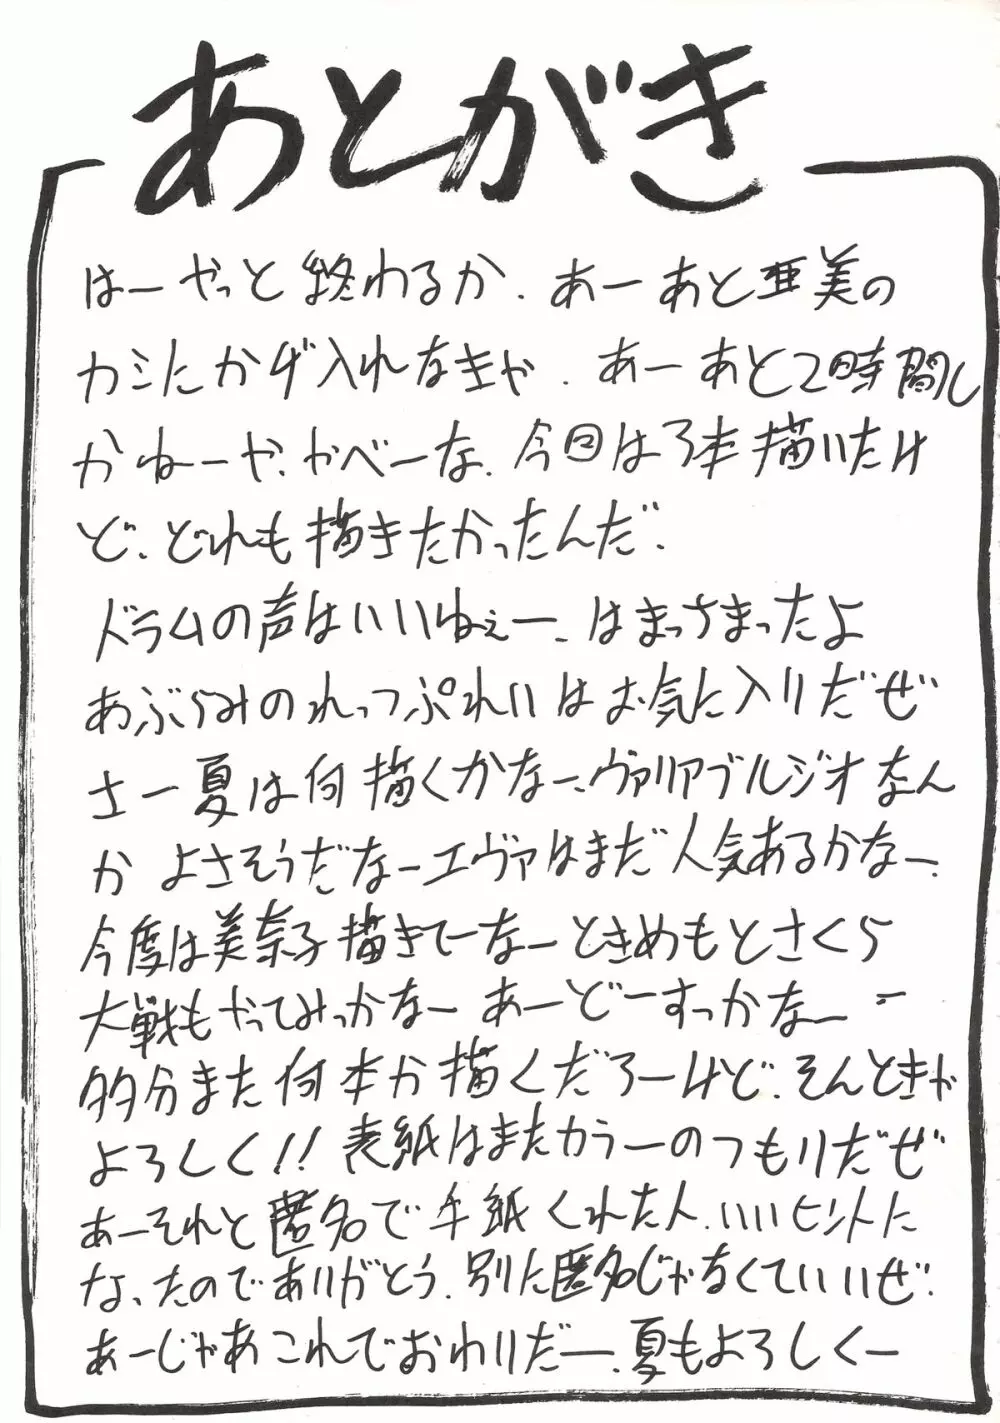 あとがき
はーやっと終わるか.あーあと亜美の
カミにかげ入れなきゃ.あーあと2時間し
かねーや、やべーな.今回は3本描いたけ
ど、どれも描きたかったんだ.
ドラムの声はいいねぇー、はまっさまったよ
あぶらみのれっつぷれいはお気に入りだぜ
さー夏は何描くかなー、ヴァリアブルジオなん
かよさそうだなーエヴァはまだ人気あるかなー.
今度は美奈子描きてーなーときめもとさくら
大戦もやってみっかなー あーどーすっかなー
多分また何本か描くだろーけど、そんときゃ
よろしく!!表紙はまたカラーのつもりだぜ
あーそれと匿名で手紙くれた人、いいヒントに
な、たのでありがとう.別に匿名じゃなくていいぜ.
あーじゃあこれでおわりだー.夏もよろしくー